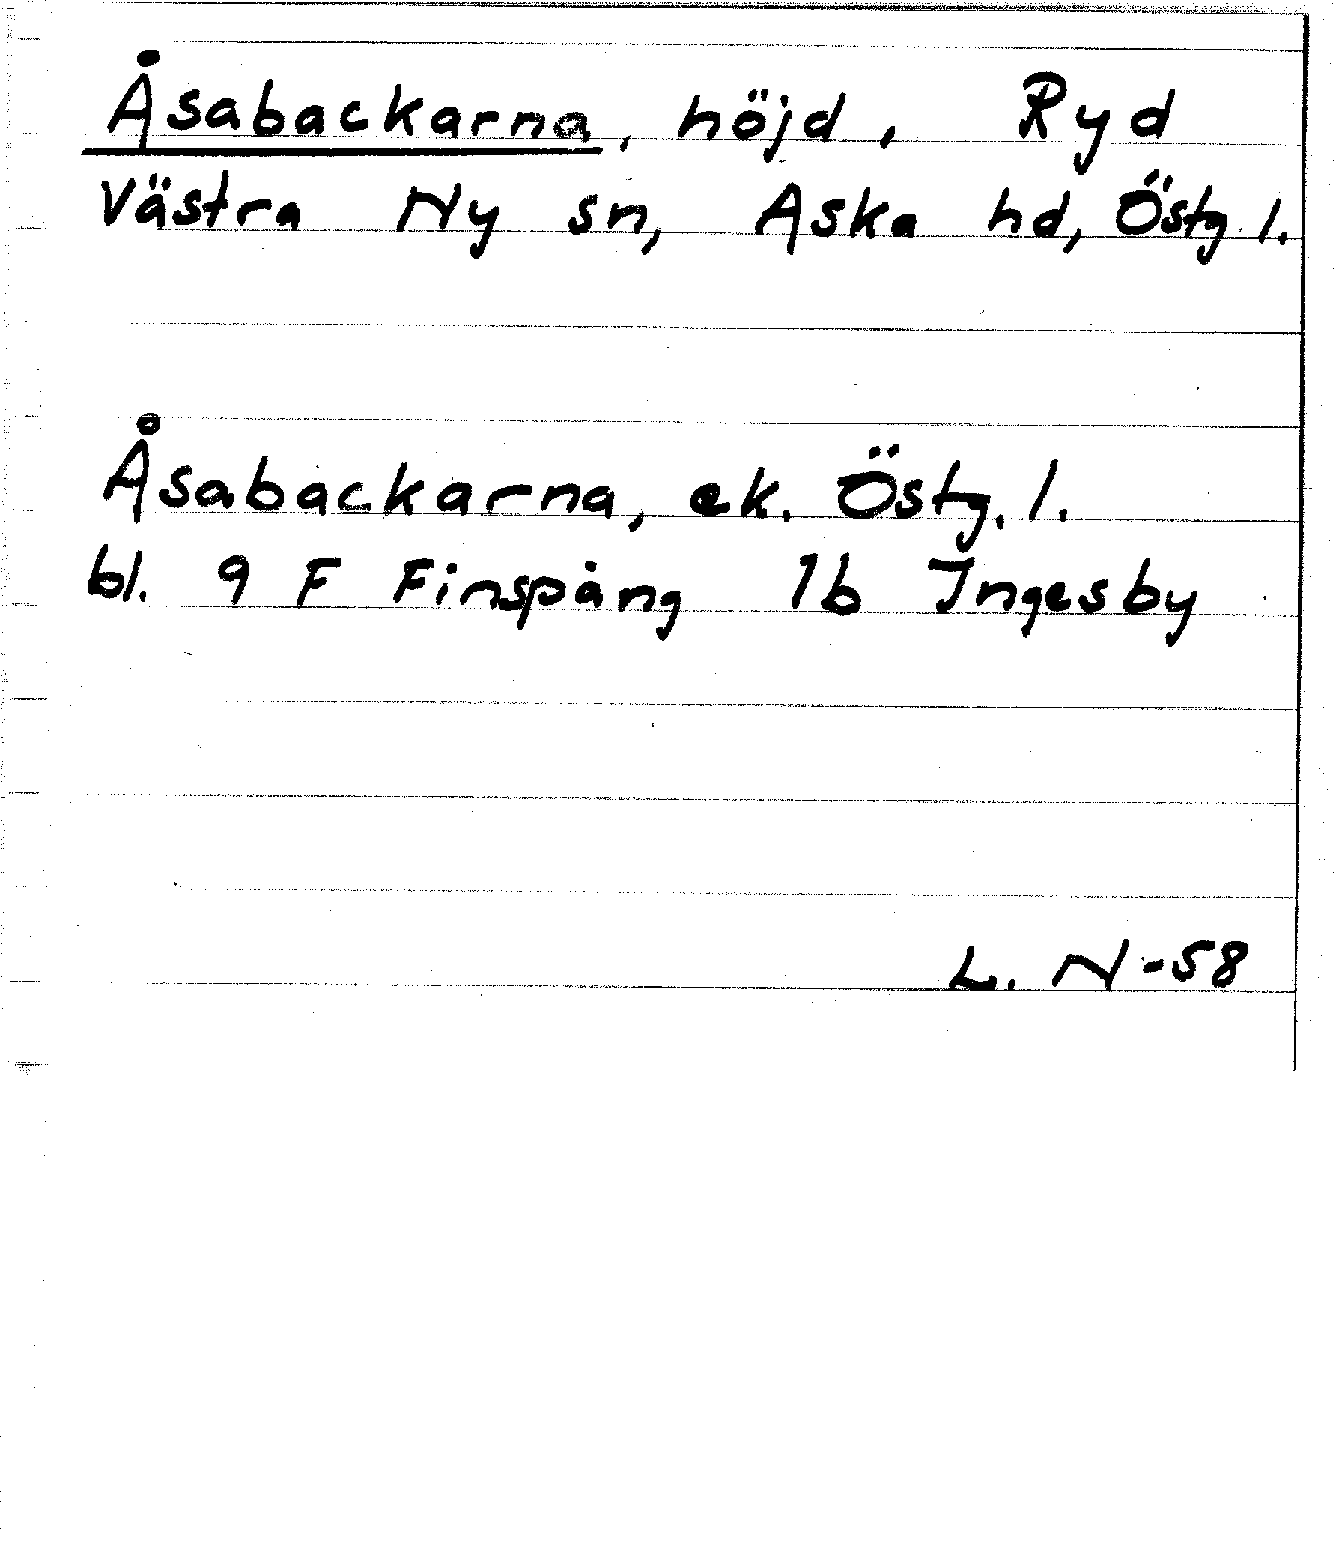 Åsabackarna, höjd, Ryd
Västra Ny sn, Aska hd, Östg. l.
Åsabackarna, ek. Östg. l.
bl. 9 F Finspång 1b Ingesby
L. N-58